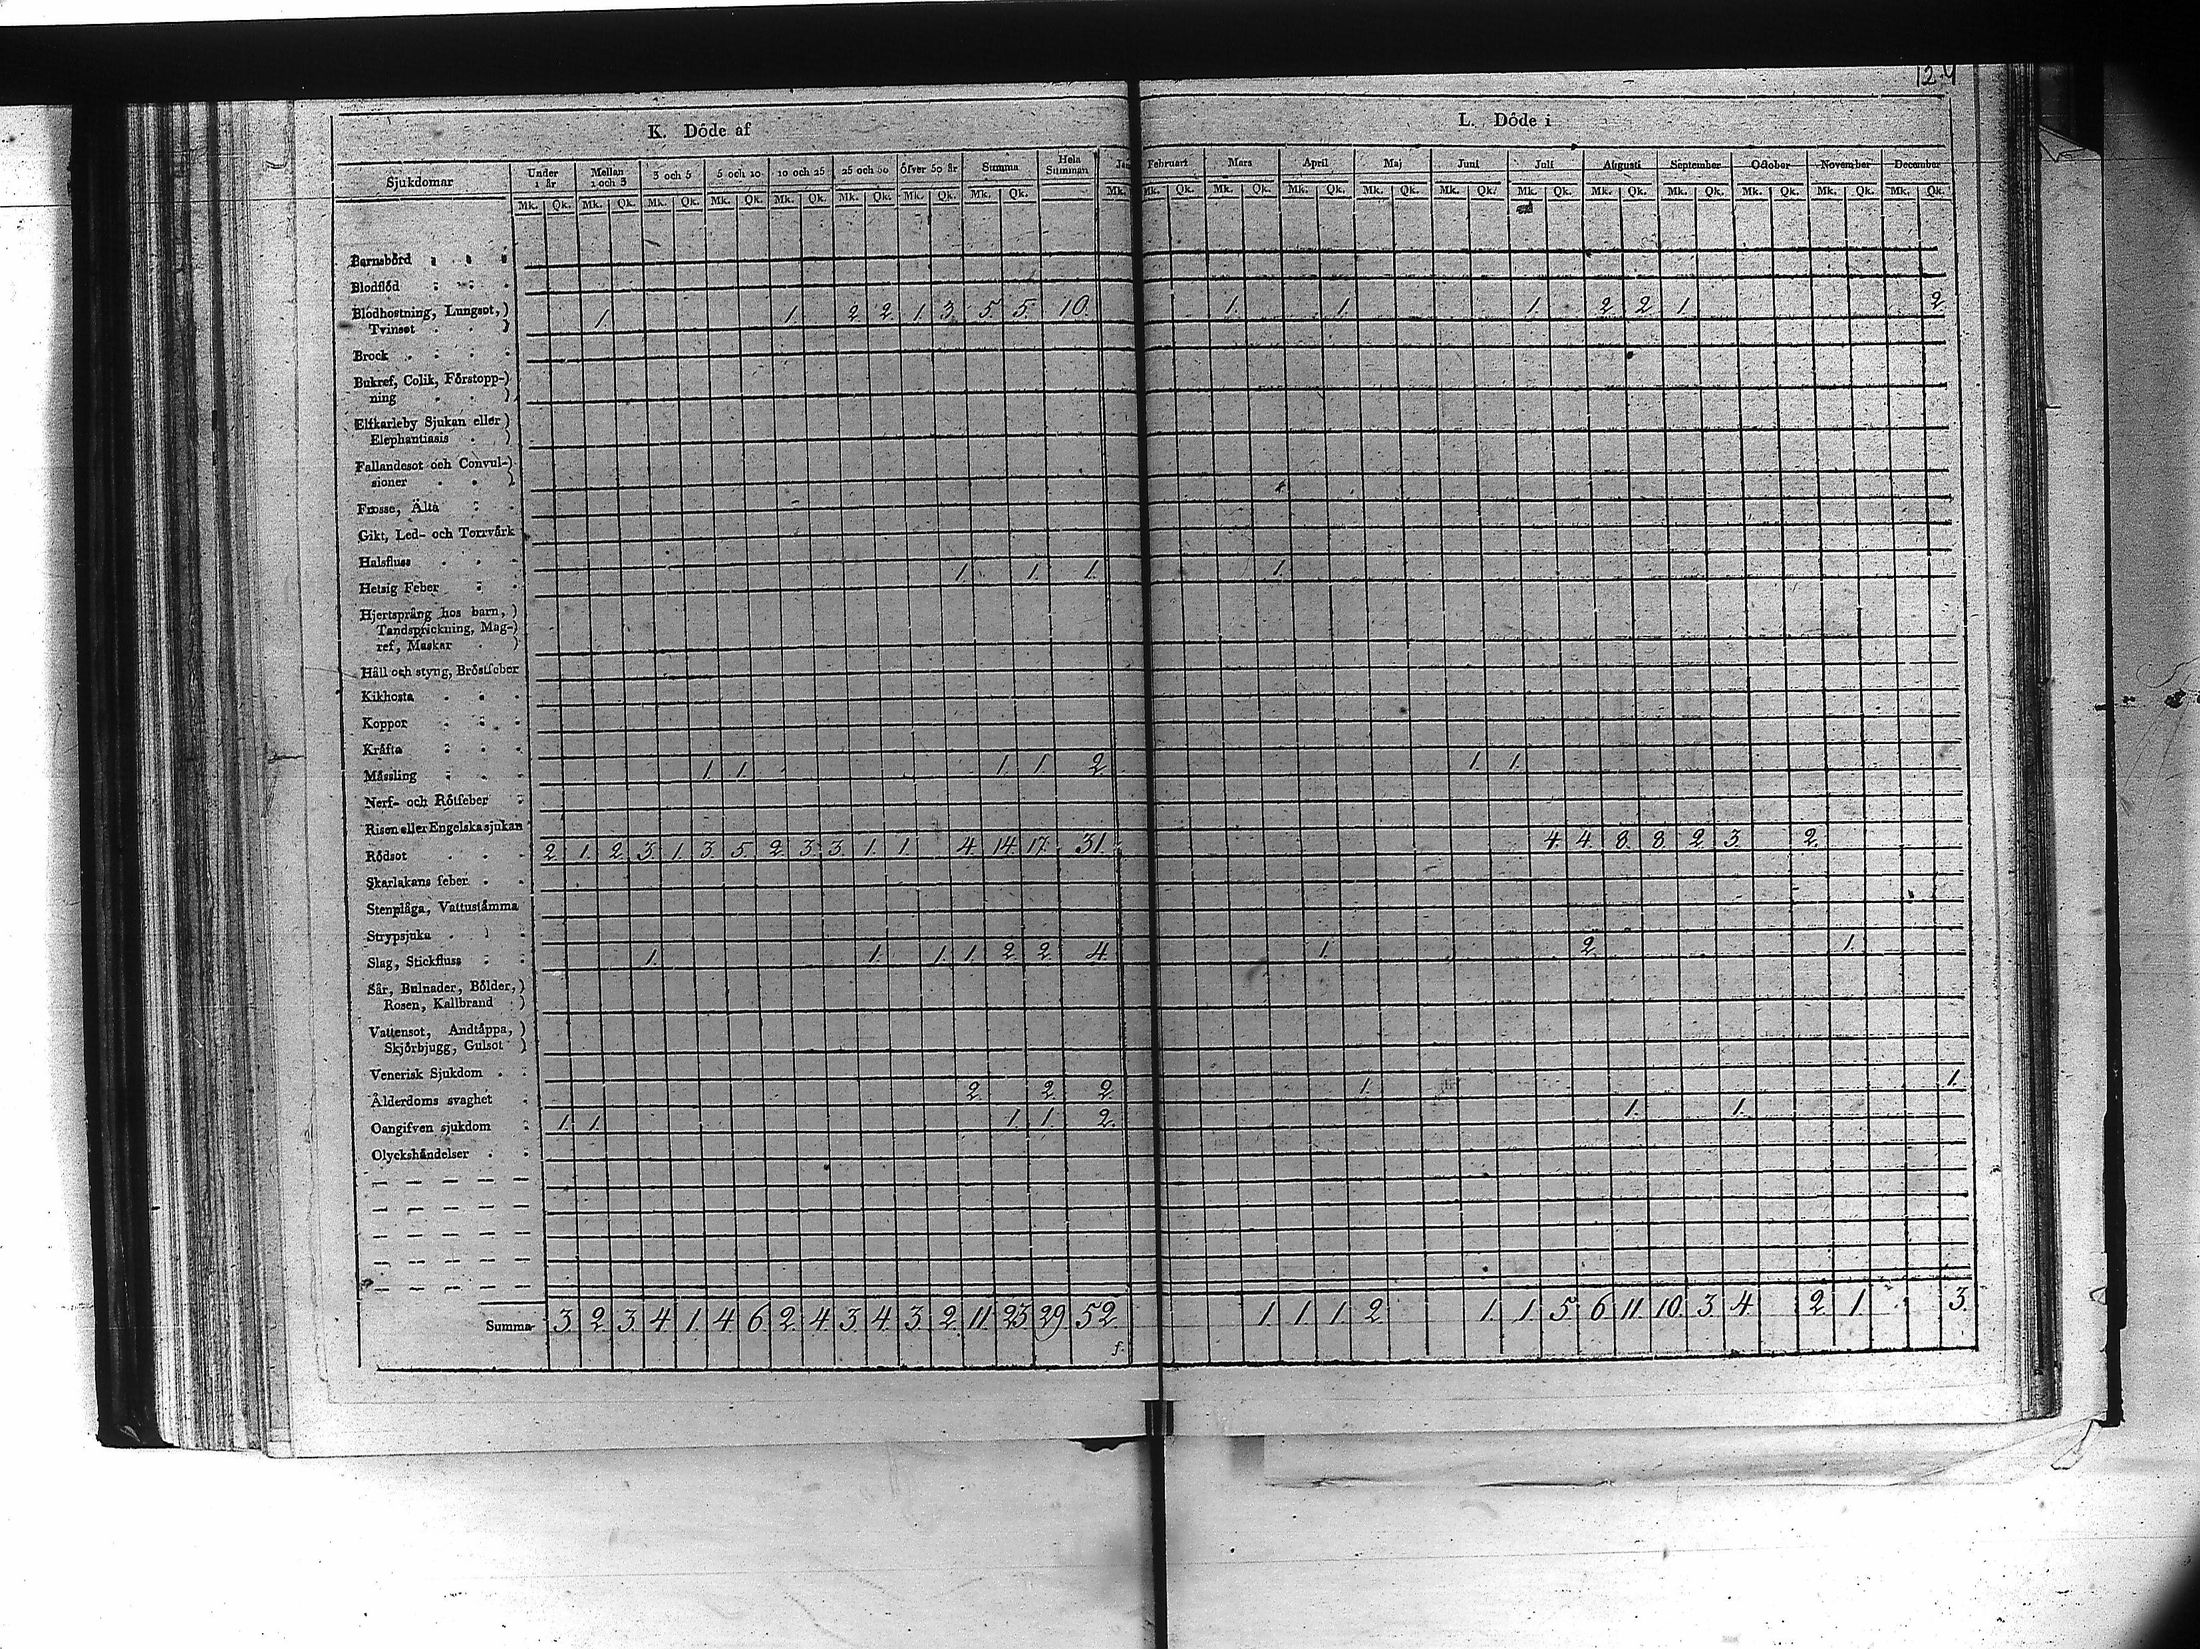 124
K. Döde af
L. Döde i
Sjukdomar Under 1 år Mellan 1 och 3 3 och 5 5 och 10 10 och 25 25 och 50 öfver 50 år Summa Hela Summan
Februari Mars April Maj Juni Juli Augusti September October November December
Mk. Qk. Mk. Qk. Mk. Qk. Mk. Qk. Mk. Qk. Mk. Qk. Mk. Qk. Mk. Qk. Mk.
Mk. Qk. Mk. Qk. Mk. Qk. Mk. Qk. Mk. Qk. Mk. Qk. Mk. Qk. Mk. Qk. Mk. Qk. Mk. Qk. Mk. Qk.
Barnsbörd
Blodflöd
Blodhostning, Lungsot,) 1. 1. 2. 2. 1. 3. 5. 5. 10. 1. 1. 1. 2. 2. 1. 2.
Tvinsot )
Brock
Bukref, Colik, Förstopp-)
ning )
Elfkarleby Sjukan eller)
Elephantiasis )
Fallandesot och Convul-)
sioner )
Frosse, Älta
Gikt, Led- och Torrvärk
Halsfluss
Hetsig Feber 1. 1. 1. 1.
Hjertsprång hos barn, )
Tandsprickning, Mag-)
ref, Maskar )
Håll och styng, Bröstfeber
Kikhosta
Koppor
Kräfta
Mässling 1. 1. 1. 1. 2. 1. 1.
Nerf- och Rötfeber
Risen eller Engelska sjukan
Rödsot 2. 1. 2. 3. 1. 3. 5. 2. 3. 3. 1. 1. 4. 14. 17. 31. 4. 4. 8. 8. 2. 3. 2.
Skarlakans feber
Stenplåga, Vattustämma
Strypsjuka
Slag, Stickfluss 1. 1. 1. 1. 2. 2. 4. 1. 2. 1.
Sår, Bulnader, Bölder,)
Rosen, Kallbrand )
Vattensot, Andtäppa, )
Skjörbjugg, Gulsot )
Venerisk Sjukdom
Ålderdoms svaghet 2. 2. 2. 1. 1.
Oangifven sjukdom 1. 1. 1. 1. 2. 1. 1.
Olyckshändelser
Summa 3. 2. 3. 4. 1. 4. 6. 2. 4. 3. 4. 3. 2. 11. 23. 29. 52. 1. 1. 1. 2. 1. 1. 5. 6. 11. 10. 3. 4. 2. 1. 3.
f.